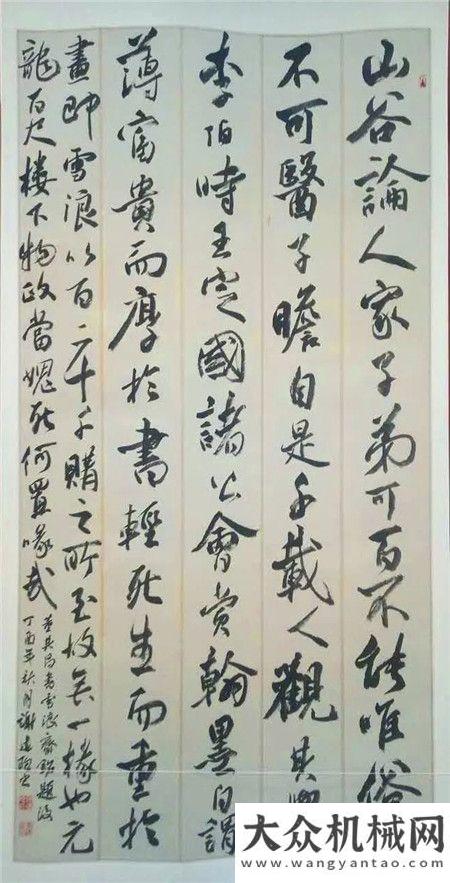 山谷論人家子弟可百不能唯俗
不可醫子瞻自是千載人觀其與
李伯時王定國諸公會賞翰墨自謂
薄富貴而厚於書輕死生而重於
畫即雪浪以百二十千購之所至故無一椽也元
龍百尺樓下物政當媿死何置喙哉
董其昌書雪浪齋銘題後
丁酉年秋月謝建書
大众机械网
www.wangyantao.com